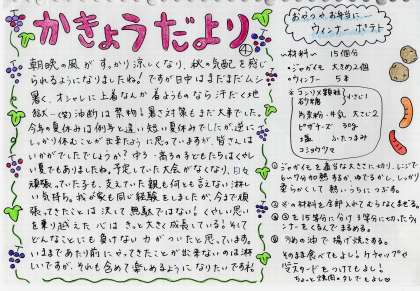 かきょうだより
朝晩の風がすっかり涼しくなり、秋の気配を感じ
られるようになりましたね！ですが日中はまだまだムシ
暑く、オシャレに上着なんか着ようものなら汗だく地
獄…(笑)油断は禁物！暑さ対策もまだ大事でした。
今年の夏休みは例年と違い短い夏休みでしたが、逆に
しっかり休むことが出来たように思っていますが、皆さんは
いかがでしたでしょうか？中3・高3の子どもたちはくやし
い夏でもありましたね。予定していた大会がなくなり、日々
頑張っていた子も、支えていた親も何とも言えない淋し
い気持ち。我が家も同じ経験をしましたが、今まで頑
張ってきたことは決して無駄ではない！くやしい思い
を乗り越えた心はきっと大きく成長している！そして
どんなことにも負けない力がついたと思っています。
いままであたり前にやってきたことが出来ないのは淋
しいですが、それも含めて楽しめるようになりたいですね
おやつや、お弁当に…
ウィンナーポテト
材料 15個分
・ジャガイモ 大きめ2個
・ウィンナー 5本
※コンソメ顆粒
砂糖
小さじ1
片栗粉・牛乳 大さじ2
ピザチーズ 30g
塩 ふたつまみ
コショウ少々
①ジャガイモを適当な大きさに切り、レンジで
6〜7分加熱するか、ゆでるかし、しっかり
柔らかくして熱いうちにつぶす。
②※の材料を全部入れてムラなくまぜる。
③②を15等分に分け3等分に切ったウィ
ンナーをくるんでまるめる。